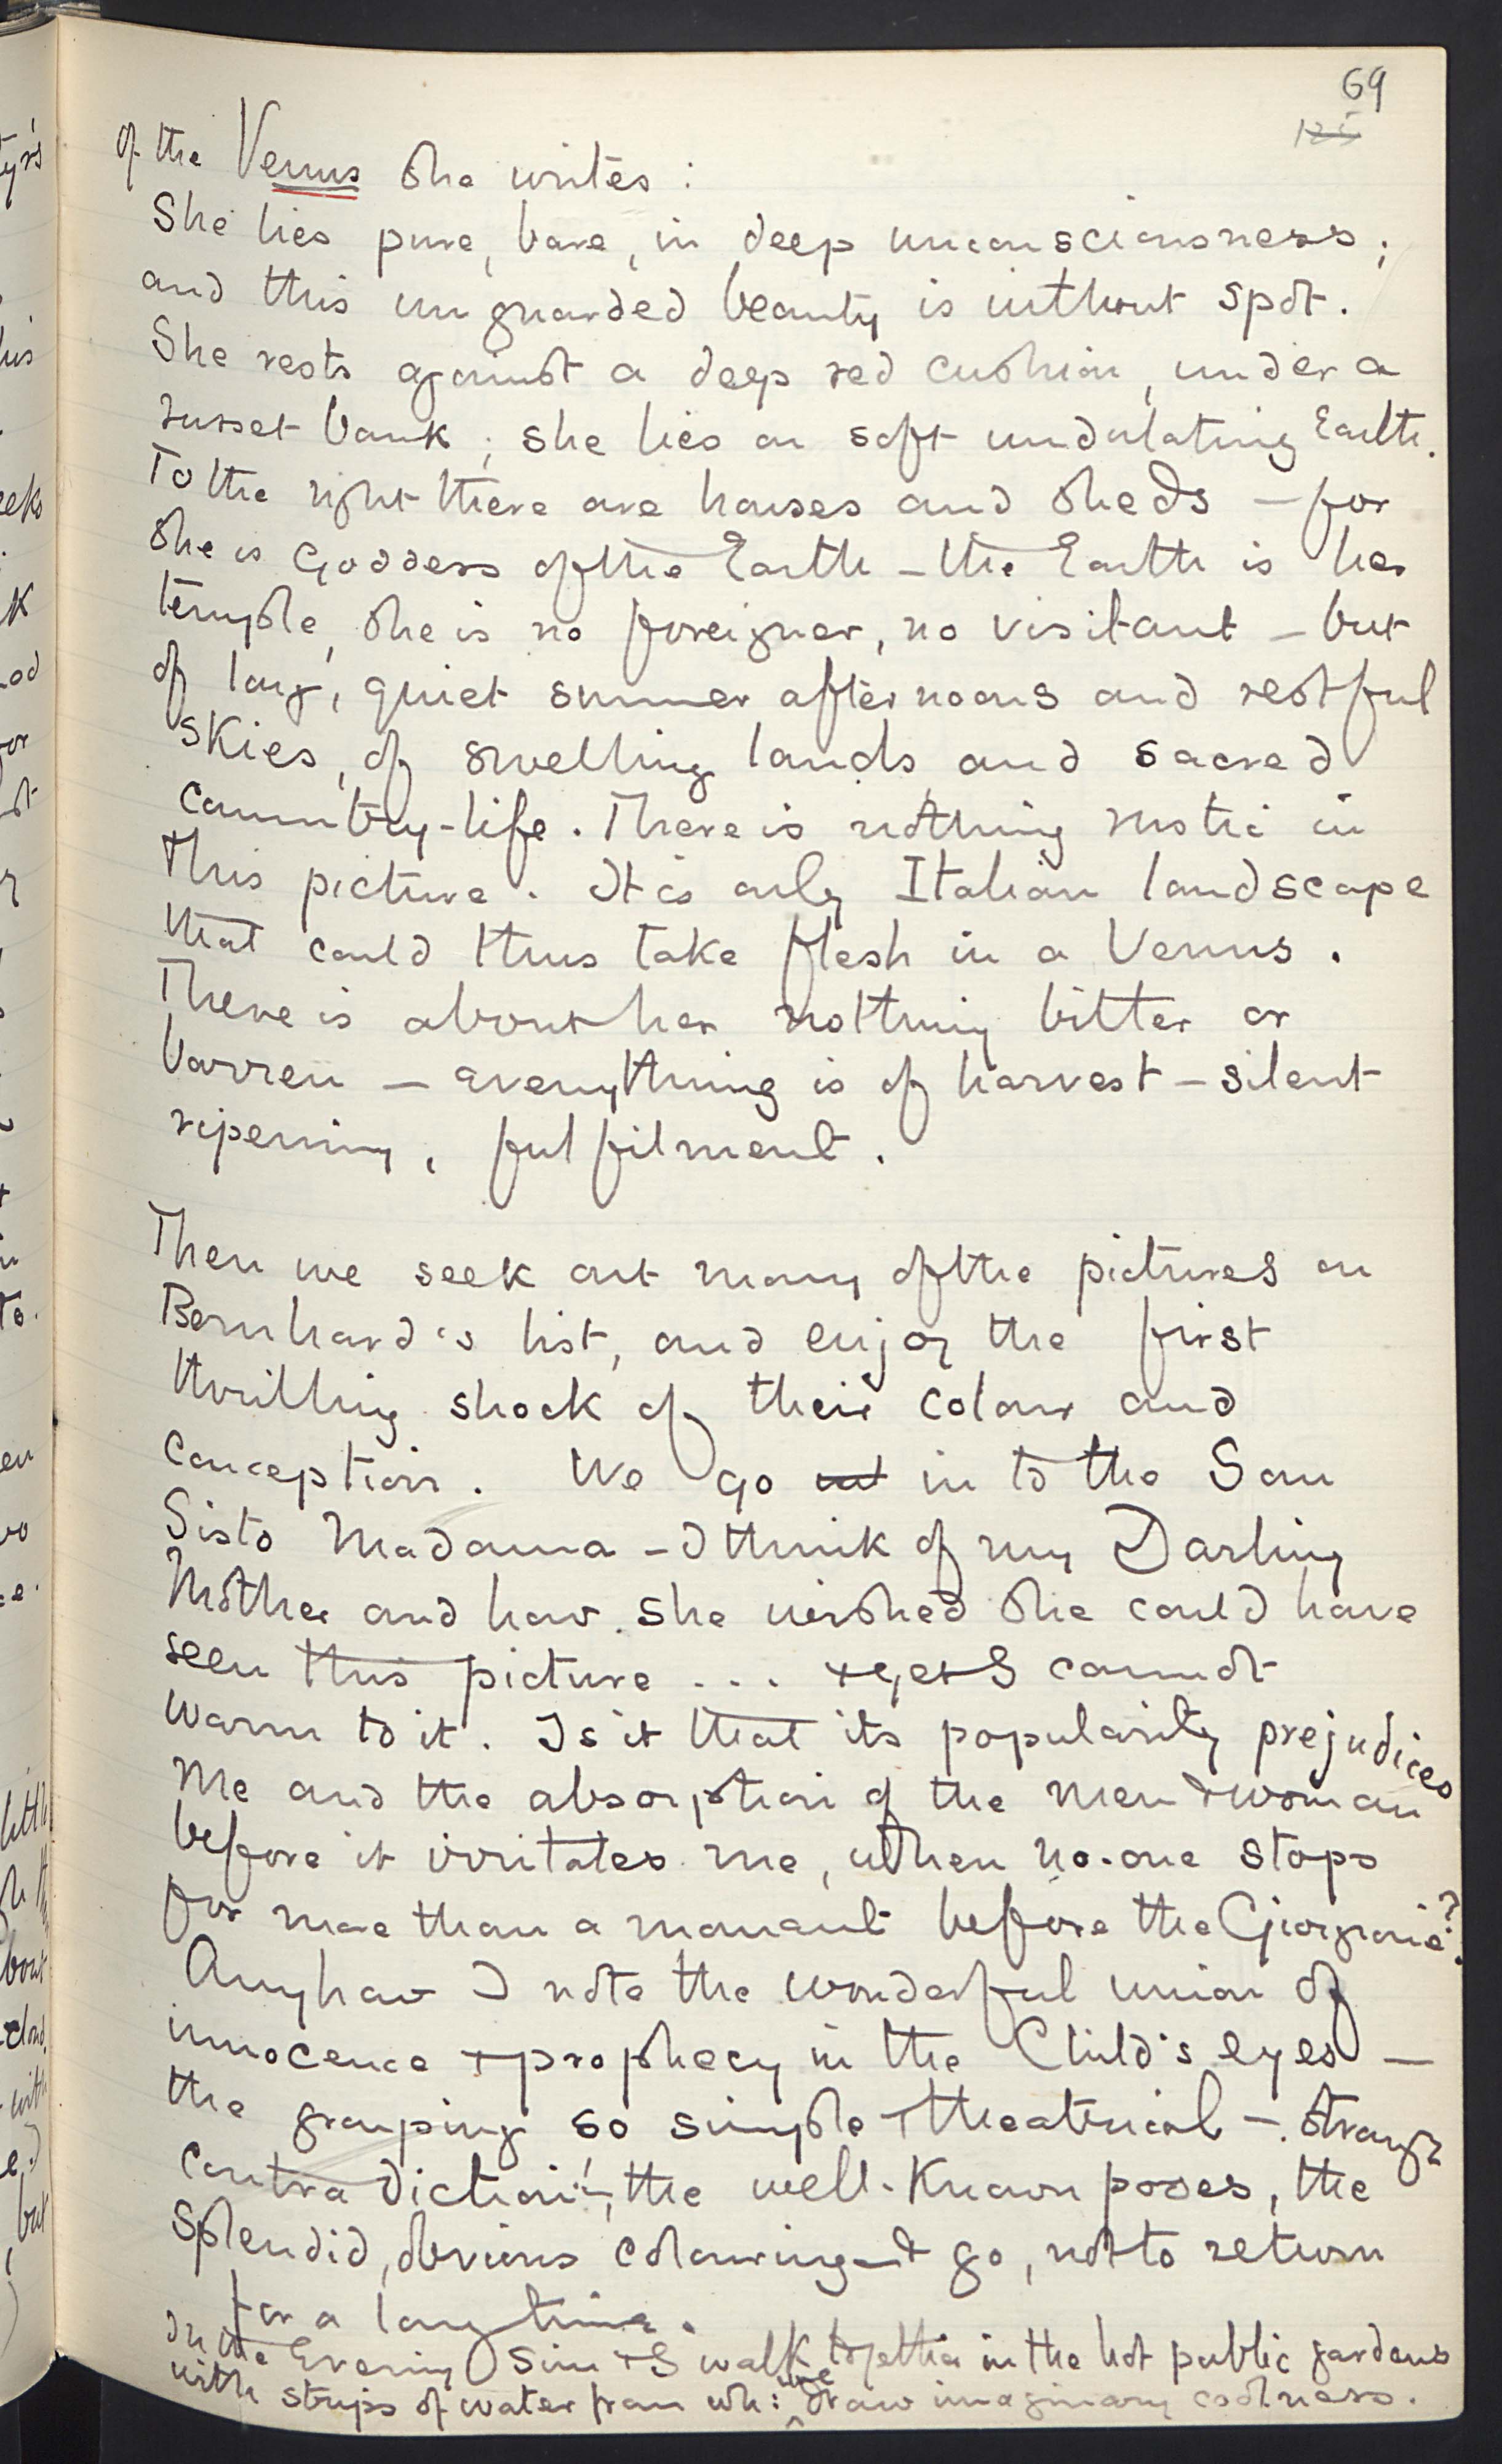 69
125
of the Venus she writes:
She lies pure, bare, in deep unconsciousness;
and this unguarded beauty is without spot.
She rests against a deep red cushion, under a
russet bank; she lies on soft undulating Earth.
To the right there are houses and sheds – for
she is Goddess of the Earth – the Earth is her
temple, she is no foreigner, no visitant – but
of long, quiet summer afternoons and restful
skies, of swelling lands and sacred
country-life. There is nothing rustic in
this picture. It is only Italian landscape
that could thus take flesh in a Venus.
There is about her nothing bitter or
barren – everything is of harvest – silent
ripening, fulfilment.
Then we seek out many of the pictures on
Bernhard's list, and enjoy the first
thrilling shock of their colour and
conception. We go out in to the San
Sisto Madonna – I think of my Darling
Mother and how she wished she could have
seen this picture ... + yet I cannot
warm to it. Is it that its popularity prejudices
me and the absorption of the men & woman
before it irritates me, when no-one stops
for more than a moment before the Giorgione?
Anyhow I note the wonderful union of
innocence + prophecy in the Child's eyes –
the grouping so simple + theatrical – strange
contradiction! –, the well-known poses, the
splendid, obvious colouring – & go, not to return
for a long time.
In the Evening Sim + I walk together in the hot public gardens
with strips of water from wh: we draw imaginary coolness.